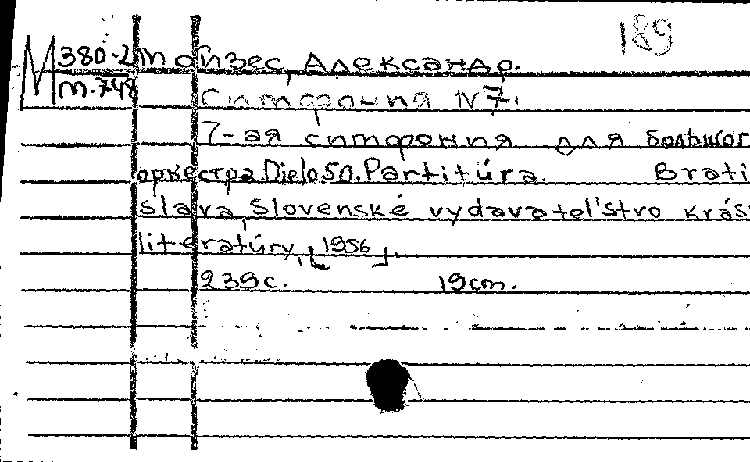 189
М 380-2 Мойзес, Александр.
м.748 Симфония N7.
7-ая симфония для большог
оркестра. Dielo 50. Partitúra. Brati
slava, Slovenské vydavateľstvo krás
literatúry, [1956].
239с. 19cm.